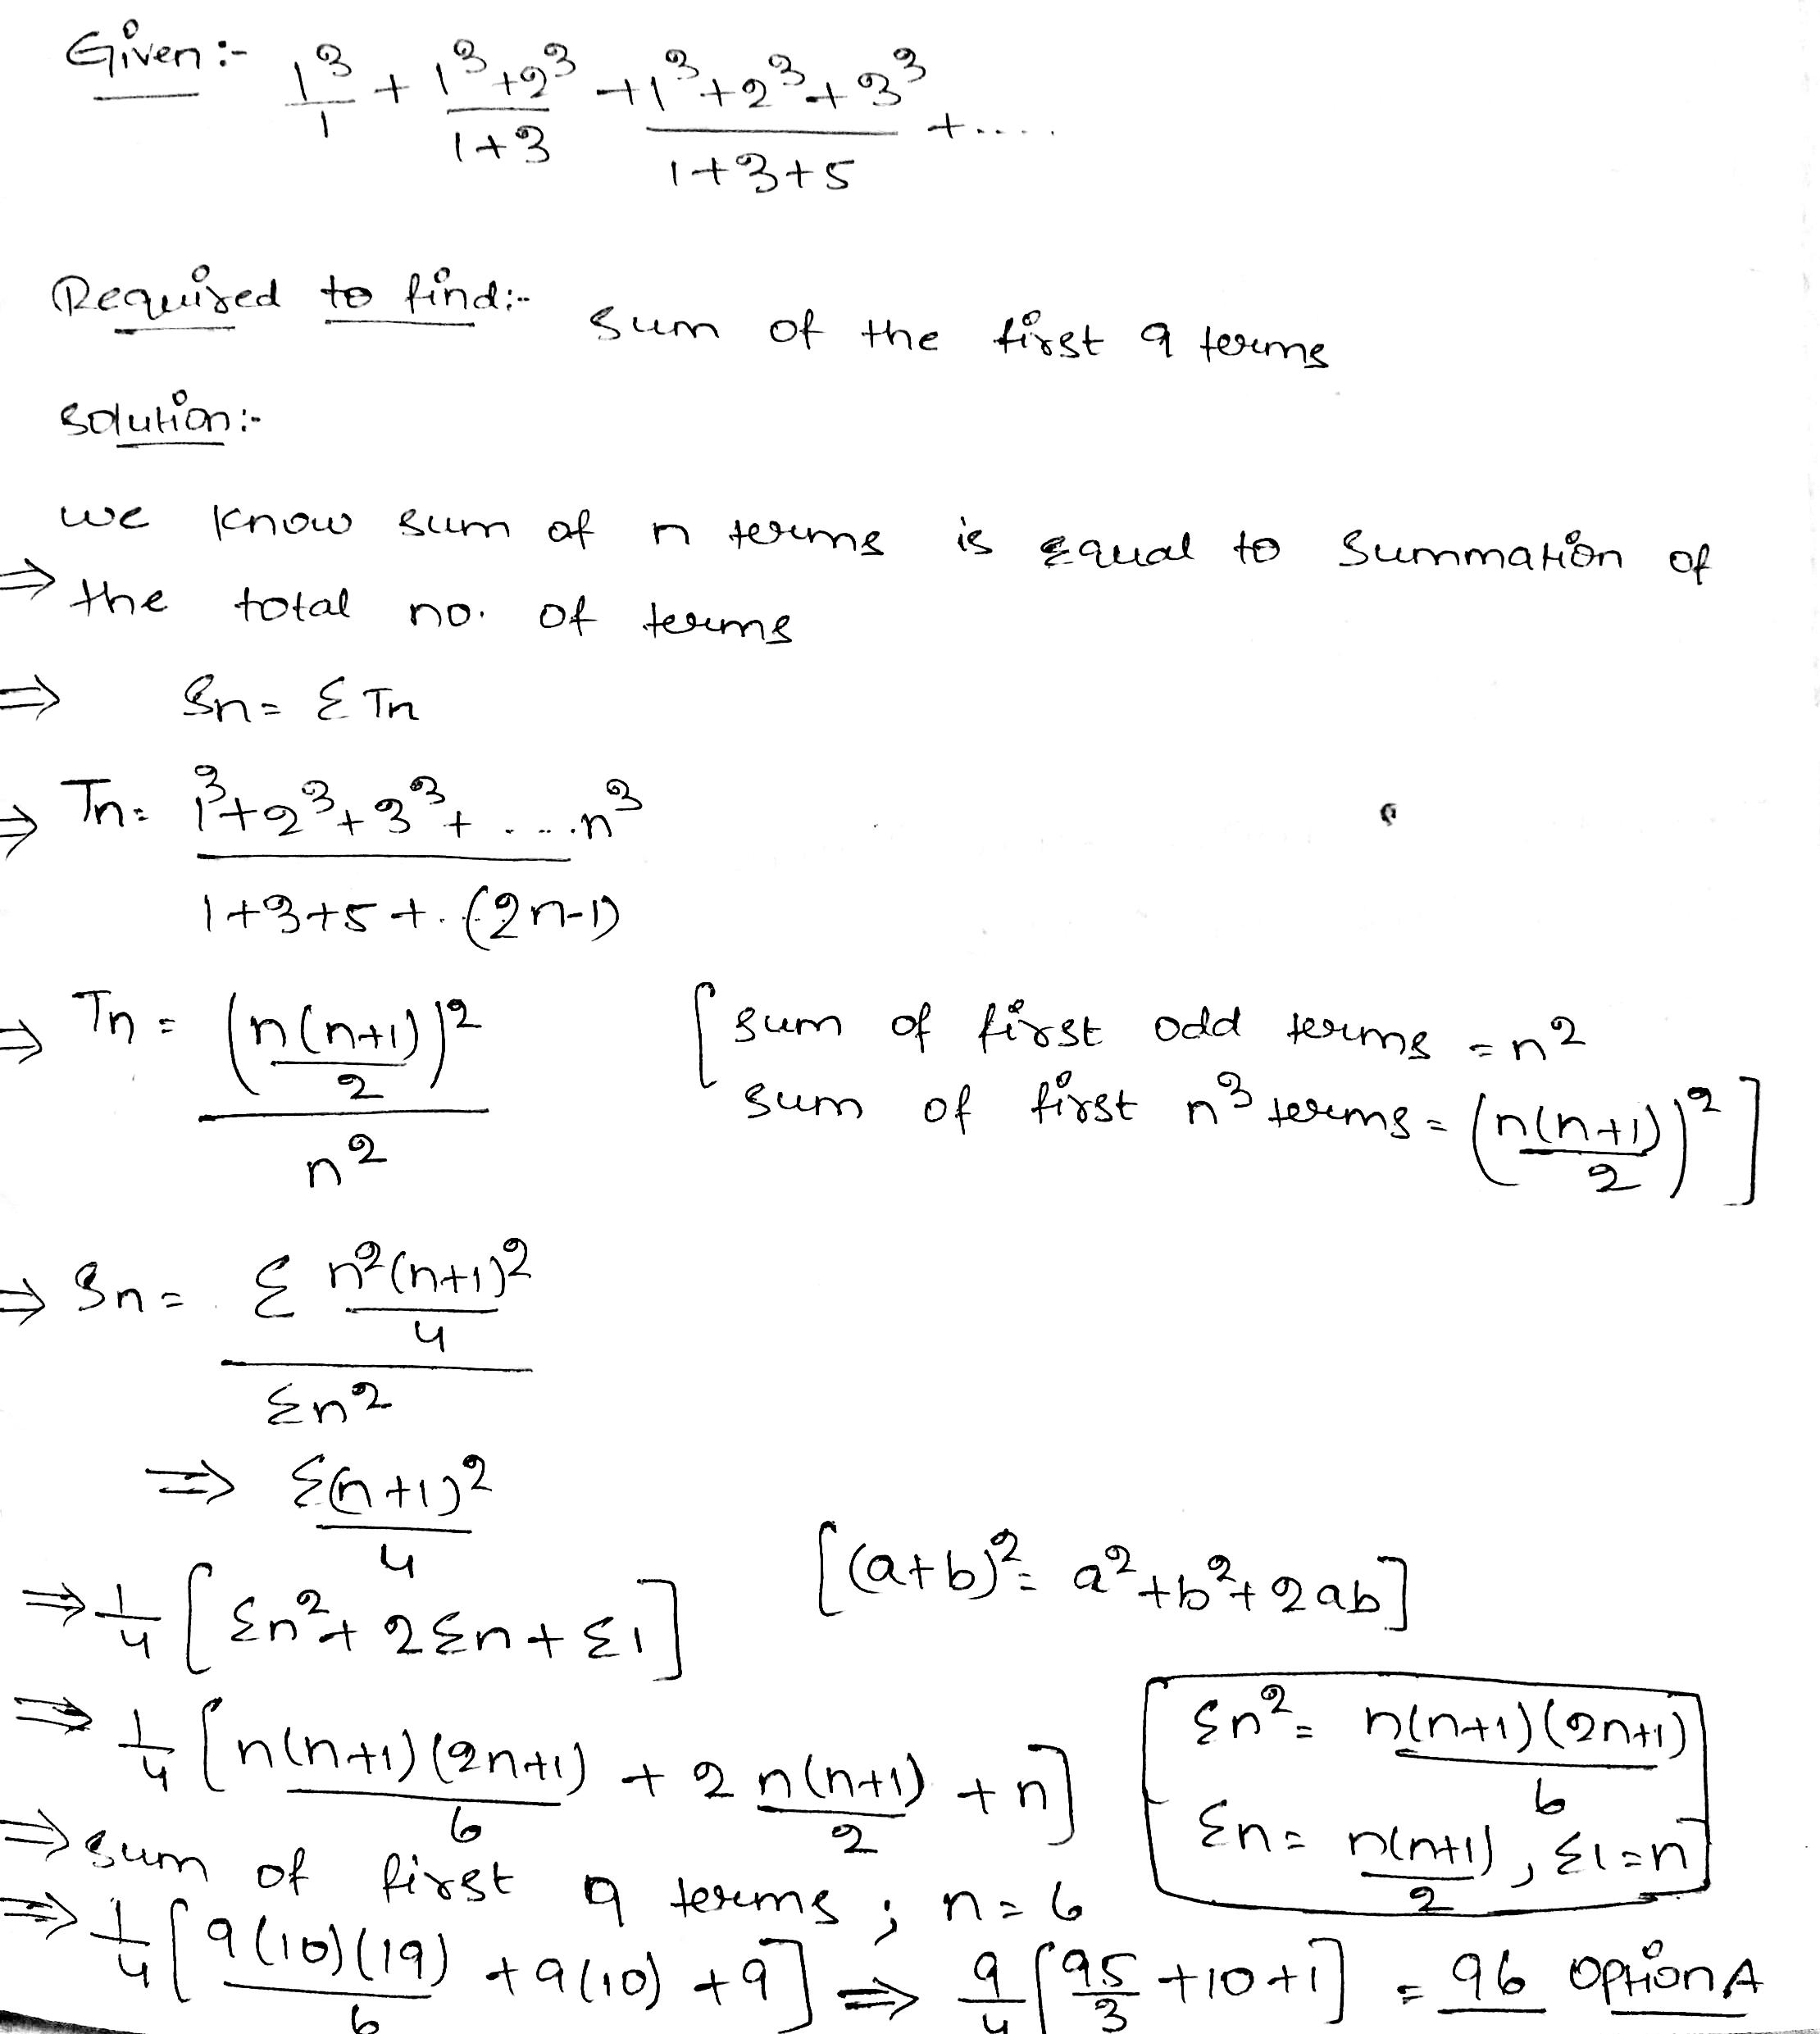 Given :- 1³/1 + (1³+2³)/(1+3) + (1³+2³+3³)/(1+3+5) + .....
Required to find:- Sum of the first 9 terms
Solution:-
we know sum of n terms is equal to Summation of
⇒ the total no. of terms
⇒ Sn = Σ Tn
⇒ Tn = (1³+2³+3³+ .....n³)/(1+3+5+..(2n-1))
⇒ Tn = (n(n+1)/2)²/n² [sum of first odd terms = n²
sum of first n³ terms = (n(n+1)/2)²]
⇒ Sn = (Σ n²(n+1)²/4)/Σn²
⇒ Σ(n+1)²/4
⇒ 1/4 [Σn² + 2Σn + Σ1] [(a+b)² = a²+b²+2ab]
⇒ 1/4 [n(n+1)(2n+1)/6 + 2 n(n+1)/2 + n]
Σn² = n(n+1)(2n+1)/6
Σn = n(n+1)/2, Σ1=n
⇒ sum of first 9 terms ; n=6
⇒ 1/4 [9(10)(19)/6 + 9(10) + 9] ⇒ 9/4 [95/3 + 10+1] = 96 OPtion A